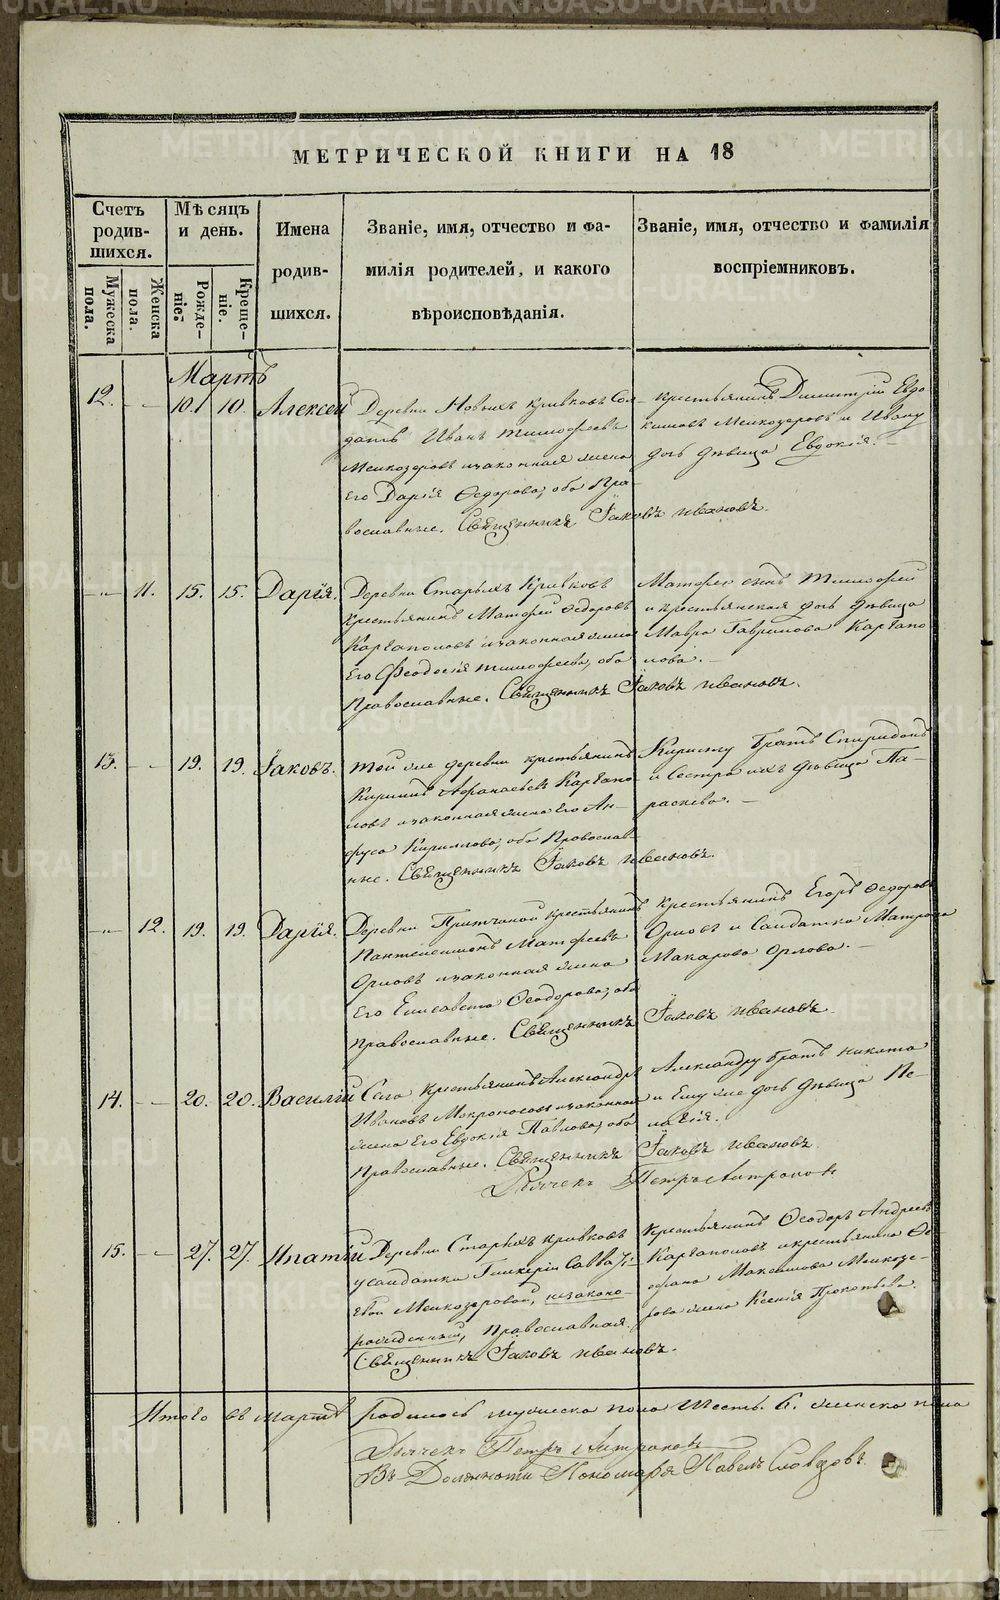 МЕТРИЧЕСКОЙ КНИГИ НА 18
Счетъ родив-шихся.
Мужеска пола.
Женска пола.
Мѣсяцъ и день.
Рожде-ніе.
Креще-ніе.
Имена
родив-
шихся.
Званіе, имя, отчество и фа-
милія родителей, и какого
вѣроисповѣданія.
Званіе, имя, отчество и фамилія
воспріемниковъ.
Мартъ
12. 10. 10. Алексей
Деревни Новыхъ Кривковъ Сол-
датъ Иванъ Тимофеевъ
Мелкозеровъ и законная жена
Его Дарія Ѳедорова, оба Пра-
вославные. Священникъ Іаковъ Ивановъ.
крестьянинъ Димитрій Евдо
кимовъ Мелкозеровъ и Ивану
дочь дѣвица Евдокія.
11. 15. 15. Дарія.
Деревни Старыхъ Кривковъ
крестьянинъ Матфей Ѳедоровъ
Каргаполовъ и законная жена
Его Феодосія Тимофеева, оба
Православные. Священникъ Іаковъ Ивановъ.
Матфею сынъ Тимофей
и крестьянская дочь дѣвица
Мавра Гаврилова Каргапо
лова.
13. 19. 19. Іаковъ.
Той же деревни крестьянинъ
Кирилъ Афанасьевъ Каргапо
ловъ и законная жена Его Ан-
фуса Кириллова, оба Православ-
ные. Священникъ Іаковъ Ивановъ.
Кирилу братъ Спиридонъ
и Сестра ихъ дѣвица Па-
раскева.
12. 19. 19. Дарія.
Деревни крестьянинъ
Пантелеимонъ Матфеевъ
Орловъ и законная жена
Его Елисавета Ѳеодорова, оба
Православные. Священникъ Іаковъ Ивановъ.
крестьянинъ Егоръ Ѳедоровъ
Орловъ и Солдатка Матрона
Макарова Орлова.
14. 20. 20. Василій
Села крестьянинъ Александръ
Ивановъ Мокроносовъ и законная
жена Его Евдокія Павлова, оба
Православные. Священникъ Іаковъ Ивановъ
Дьячекъ Петръ
Александру братъ Никита
и Ему же дочь дѣвица Пе-
лагія.
15. 27. 27. Ипатій
Деревни Старыхъ Кривковъ
у солдатки Гликеріи Савватѣ-
евой Мелкозеровой, незаконо-
рожденный, Православная.
Священникъ Іаковъ Ивановъ.
Крестьянинъ Ѳеодоръ Андреевъ
Каргаполовъ и крестьянина Ѳе
офана Максимова Мелкозе-
рова жена Ксенія Прокопьева.
Итого въ Мартѣ родилось мужеска пола шесть. 6. женска пола
Дьячекъ Петръ
Въ Должности Пономаря Павелъ Словцовъ.
METRIKI.GASO-URAL.RU